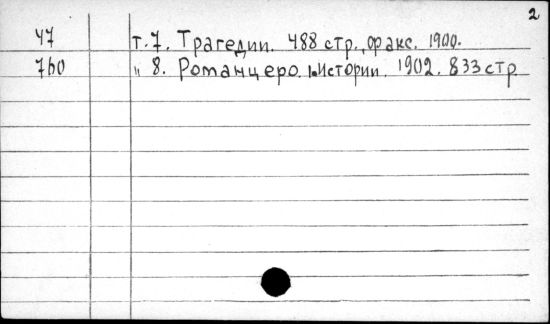 2
47 т. 7. Трагедии. 488 стр., факс. 1900.
760 " 8. Романцеро. Истории. 1902. 833 стр